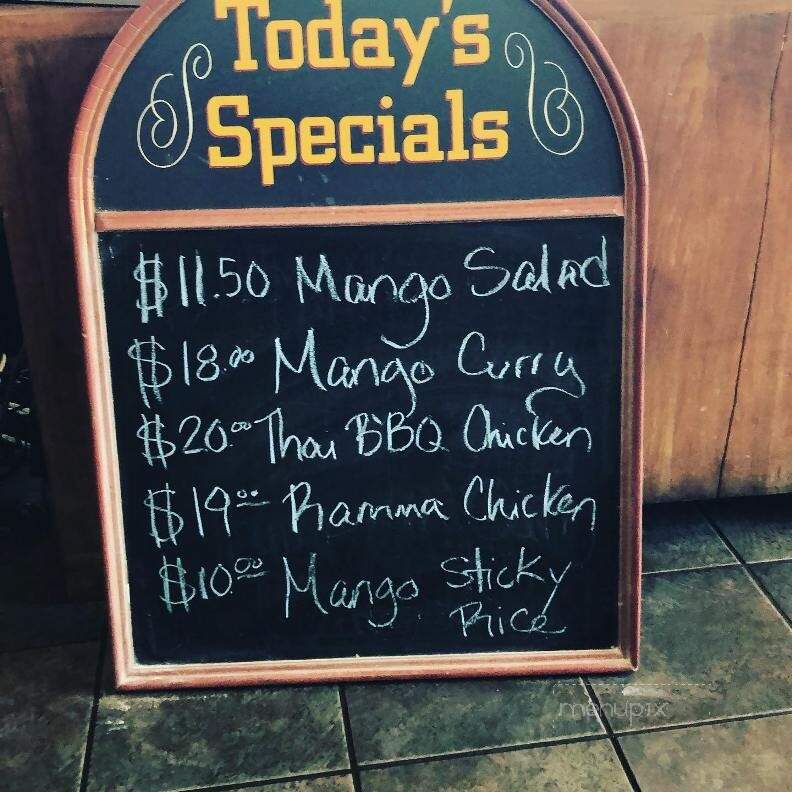 Today's
Specials
$11.50 Mango Salad
$18.00 Mango Curry
$20.00 Thai BBQ Chicken
$19.00 Ramma Chicken
$10.00 Mango Sticky
Rice
menupix